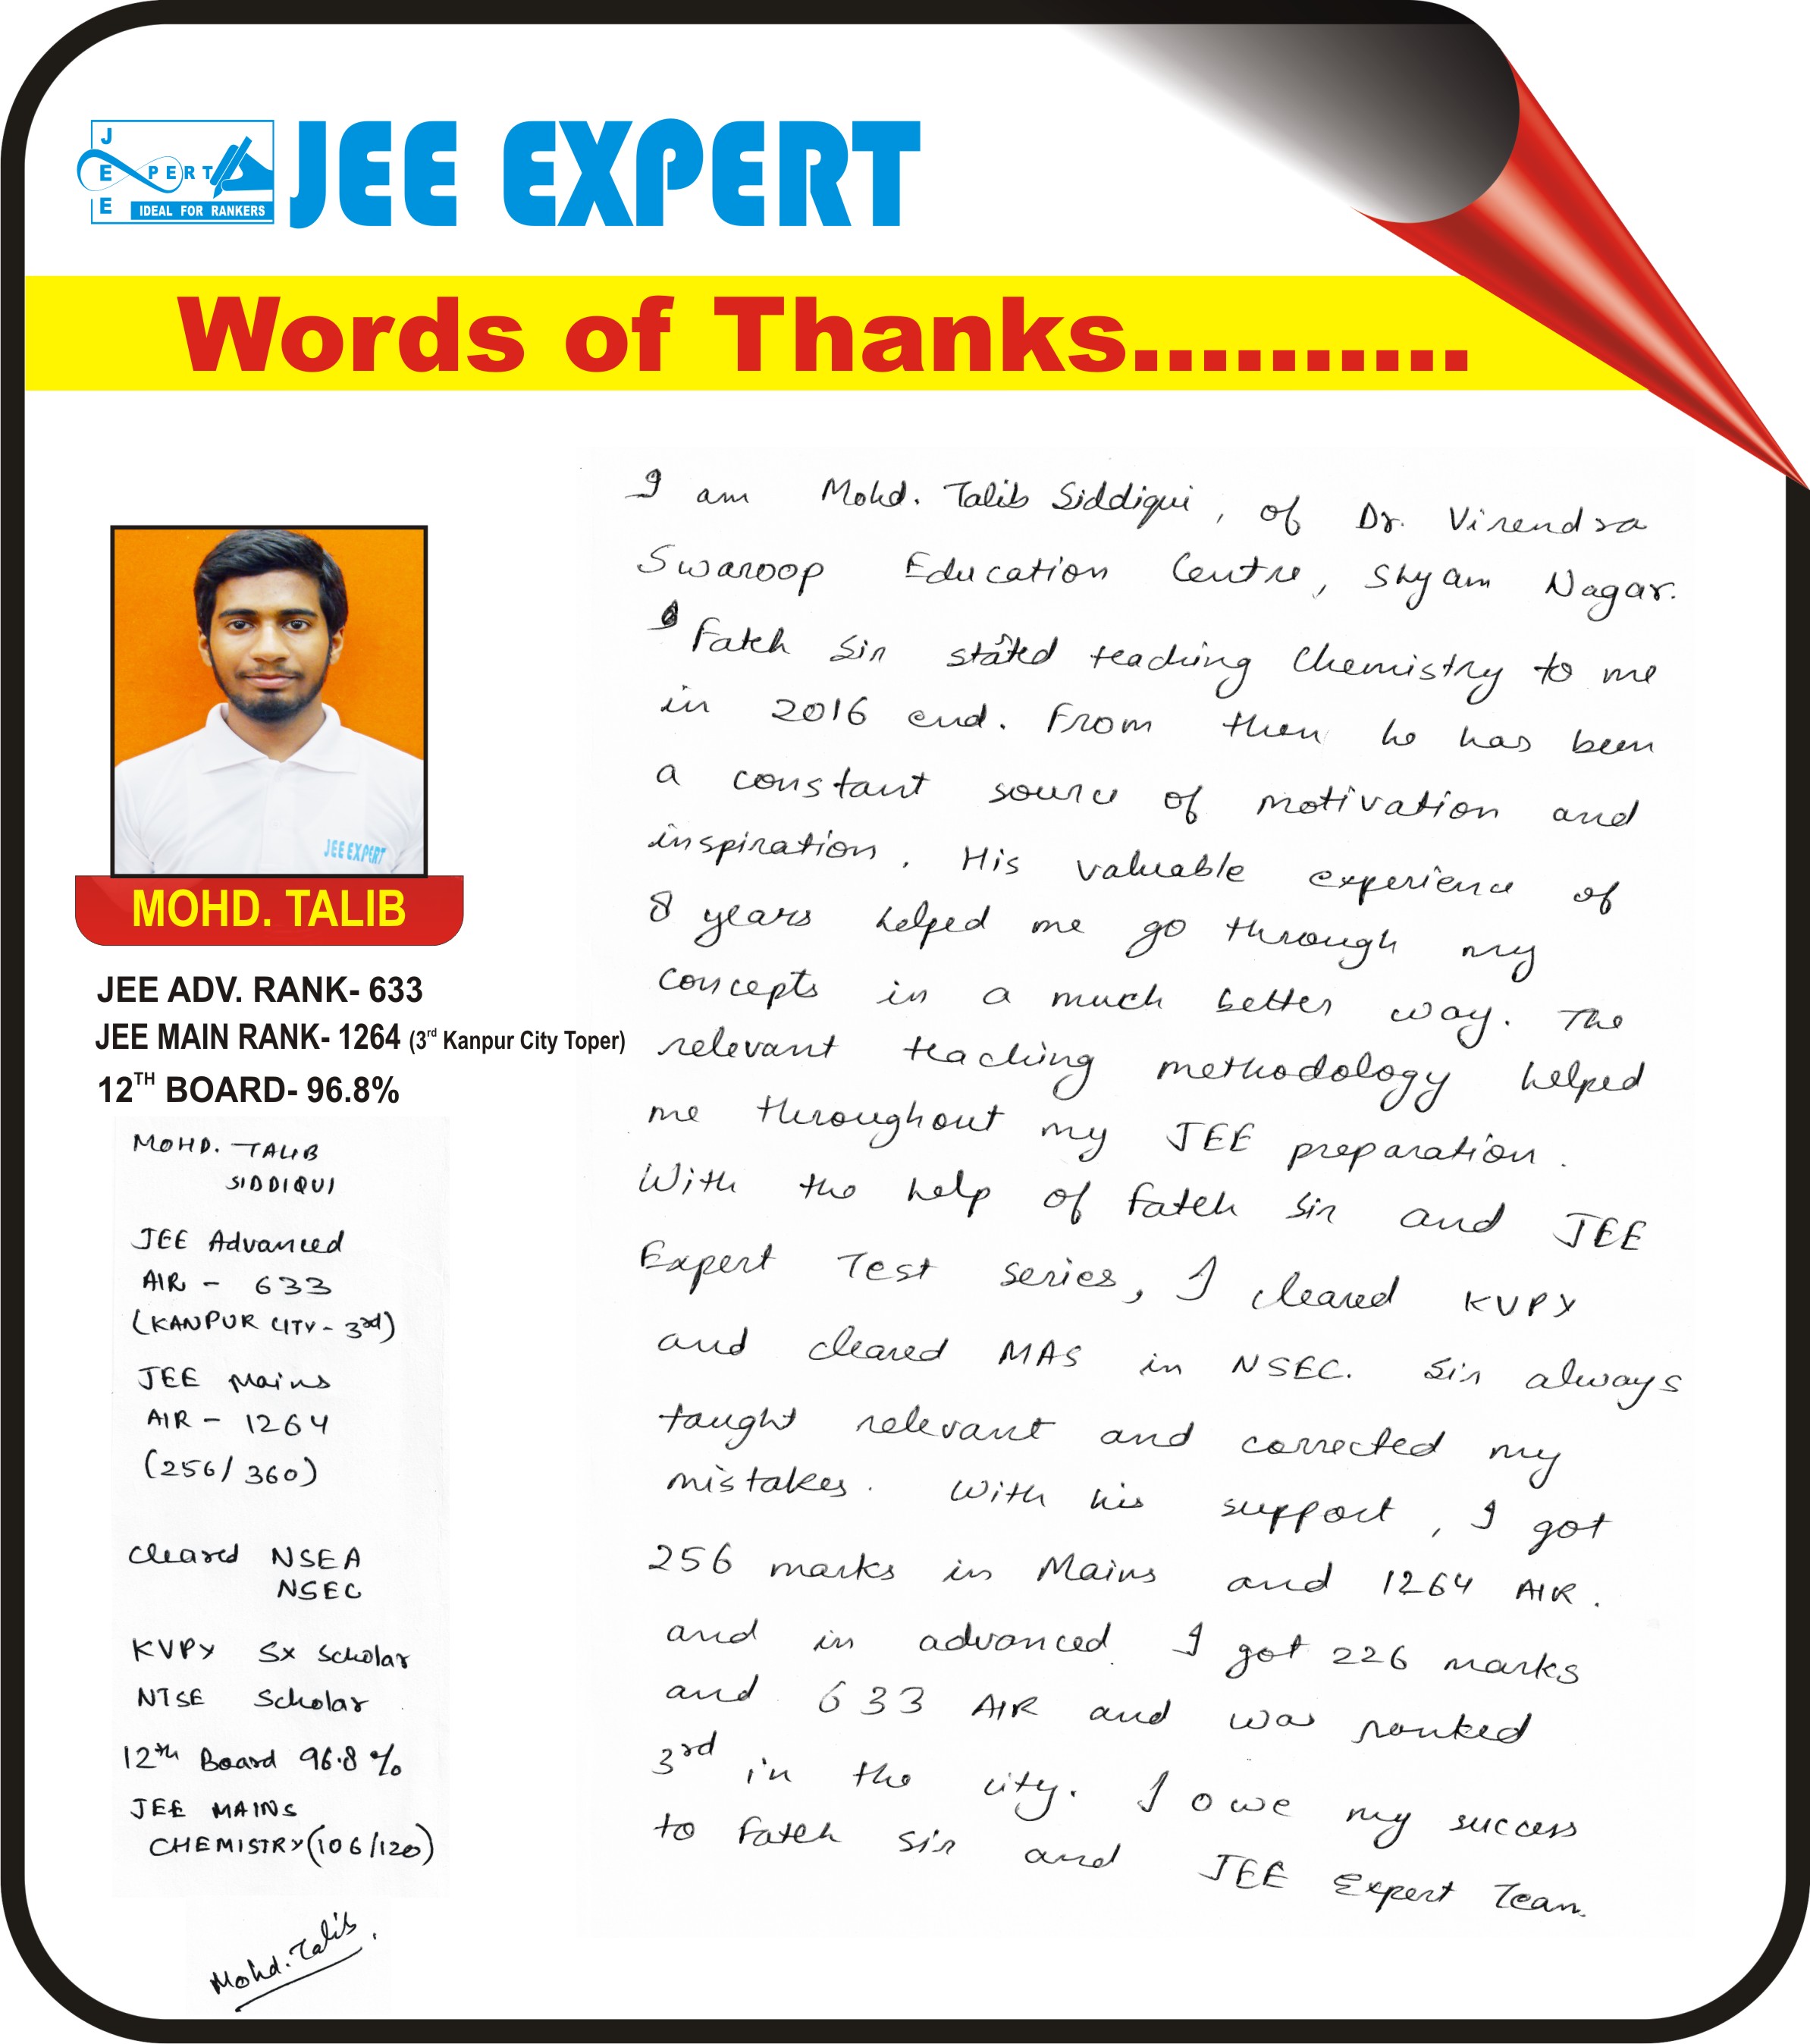 J
E PERT
E IDEAL FOR RANKERS
JEE EXPERT
Words of Thanks..........
JEE EXPERT
MOHD. TALIB
JEE ADV. RANK- 633
JEE MAIN RANK- 1264 (3rd Kanpur City Toper)
12TH BOARD- 96.8%
MOHD. TALIB
SIDDIQUI
JEE Advanced
AIR - 633
(KANPUR CITY - 3rd)
JEE Mains
AIR - 1264
(256/360)
Cleared NSEA
NSEC
KVPY SX Scholar
NTSE Scholar
12th Board 96.8%
JEE MAINS
CHEMISTRY (106/120)
Mohd. Talib.
I am Mohd. Talib Siddiqui, of Dr. Virendra
Swaroop Education Centre, Shyam Nagar.
Fateh Sir stated teaching Chemistry to me
in 2016 end. From then he has been
a constant source of motivation and
inspiration. His valuable experience of
8 years helped me go through my
concepts in a much better way. The
relevant teaching methodology helped
me throughout my JEE preparation.
With the help of Fateh Sir and JEE
Expert Test series, I cleared KVPY
and cleared MAS in NSEC. Sir always
taught relevant and corrected my
mistakes. With his support, I got
256 marks in Mains and 1264 AIR.
and in advanced I got 226 marks
and 633 AIR and was ranked
3rd in the city. I owe my success
to Fateh Sir and JEE Expert Team.